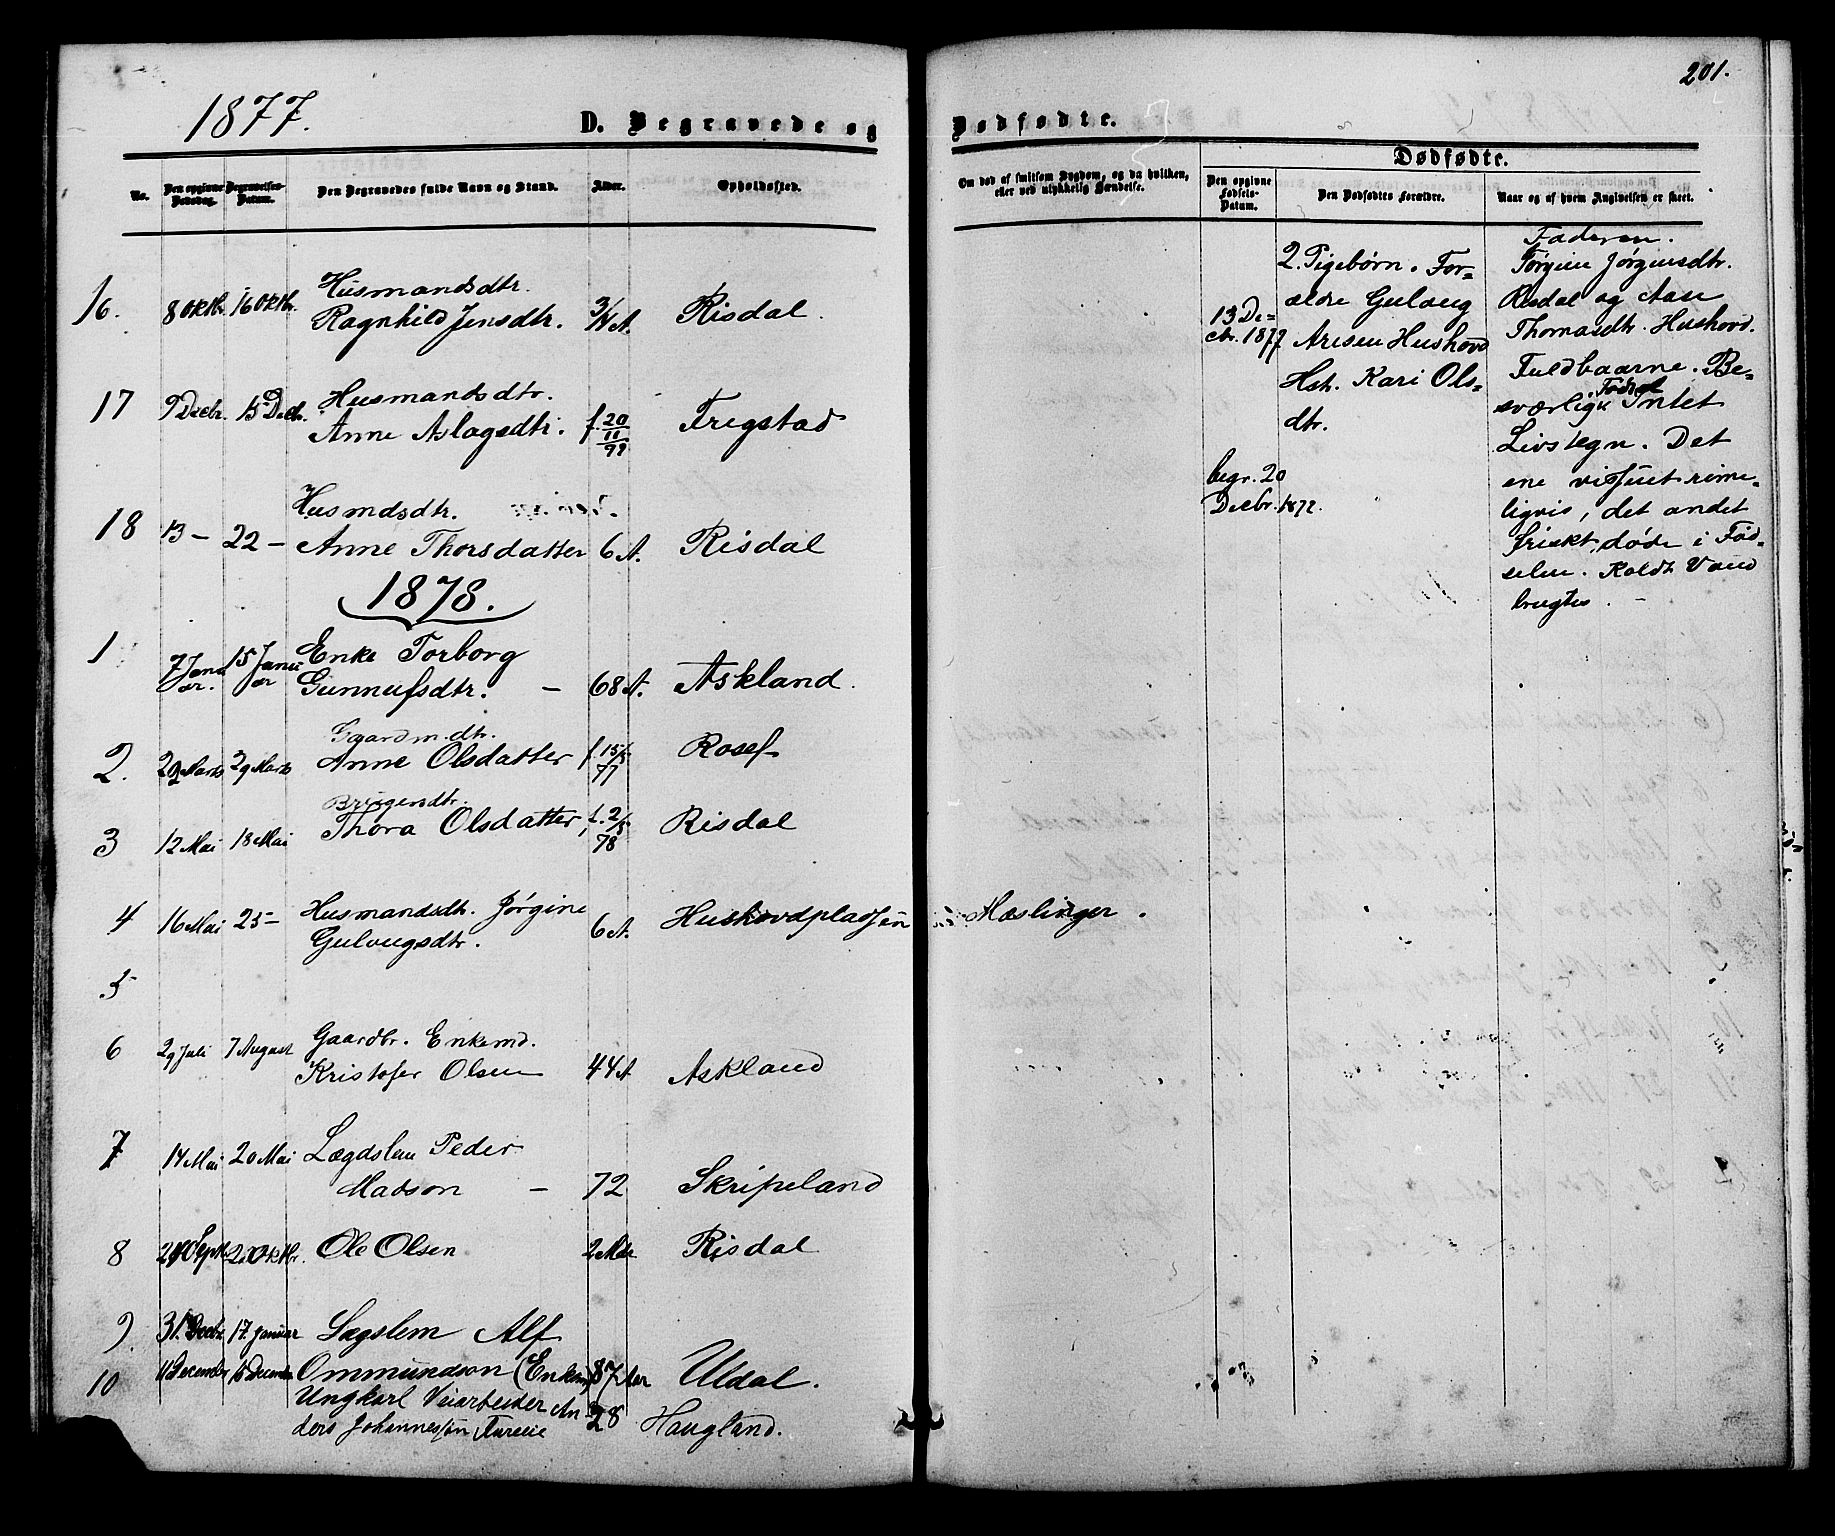 1877.
D. Begravede og
No.
Den opgivne Dødsdag.
Begravelses-Datum.
Den Begravedes fulde Navn og Stand.
Alder.
Opholdssted.
16. 8 Oktbr. 16 Oktbr. Husmandsdtr.
Ragnhild Jensdtr. 3/4 A. Risdal.
17 9 Decbr. 15 Decbr. Husmandsdtr.
Anne Aslagsdtr. f. 20/11 Frigstad
18 13 – 22 – Husmdsdtr.
Anne Thorsdatter 6 A. Risdal
1878.
1 7 Januar. 15 Januar Enke Torborg
Gunnufsdtr. – 68 A. Askland.
2. Gaardm.dtr.
29 Marts Anne Olsdatter f. 15/5 77 Rosef
3 12 Mai 18 Mai
Thora Olsdatter, f. 2/5 78 Risdal
4 16 Mai 25 – Husmandsdtr. Jørgine
Gulougsdtr. 6 A. Hushovdpladsen
5
6 29 Juli 7 August Gaardbr. Enkemd.
Kristofer Olsen 44 A Askland
7 14 Mai 20 Mai Lægdslem Peder
Madson – 72 Skripeland
8 Ole Olsen 2 Mdr Risdal
9. 31. Decbr. 17. Januar Lægslem Alf
Ommundson (Enkem) 87 Aar Uldal.
10 11 December 18 December Ungkarl Veiarbeider An-
ders Johannessøn 28 Haugland.
201.
Dødfødte.
Om død af smitsom Sygdom, og da hvilken, eller ved ulykkelig Hændelse.
Dødfødte.
Den opgivne Fødsels-Datum.
Den Dødfødtes Forældre.
Naar og af hvem Angivelsen er skeet.
13 De-
cbr. 1877
begr. 20
Decbr. 1877.
2. Pigebørn. For-
ældre Guloug
Aresen Hushovd
Hst. Kari Ols-
dtr.
Faderen.
Tørgine Jørgensdtr.
Risdal og Aase
Thomasdtr. Hushovd.
Fuldbaarne. Be-
sværlig Fødsel Intet
Livstegn. Det
ene visnet rime-
ligvis, det andet
friskt, døde i Fød-
selen. Koldt Vand
brugtes. –
Mæslinger.